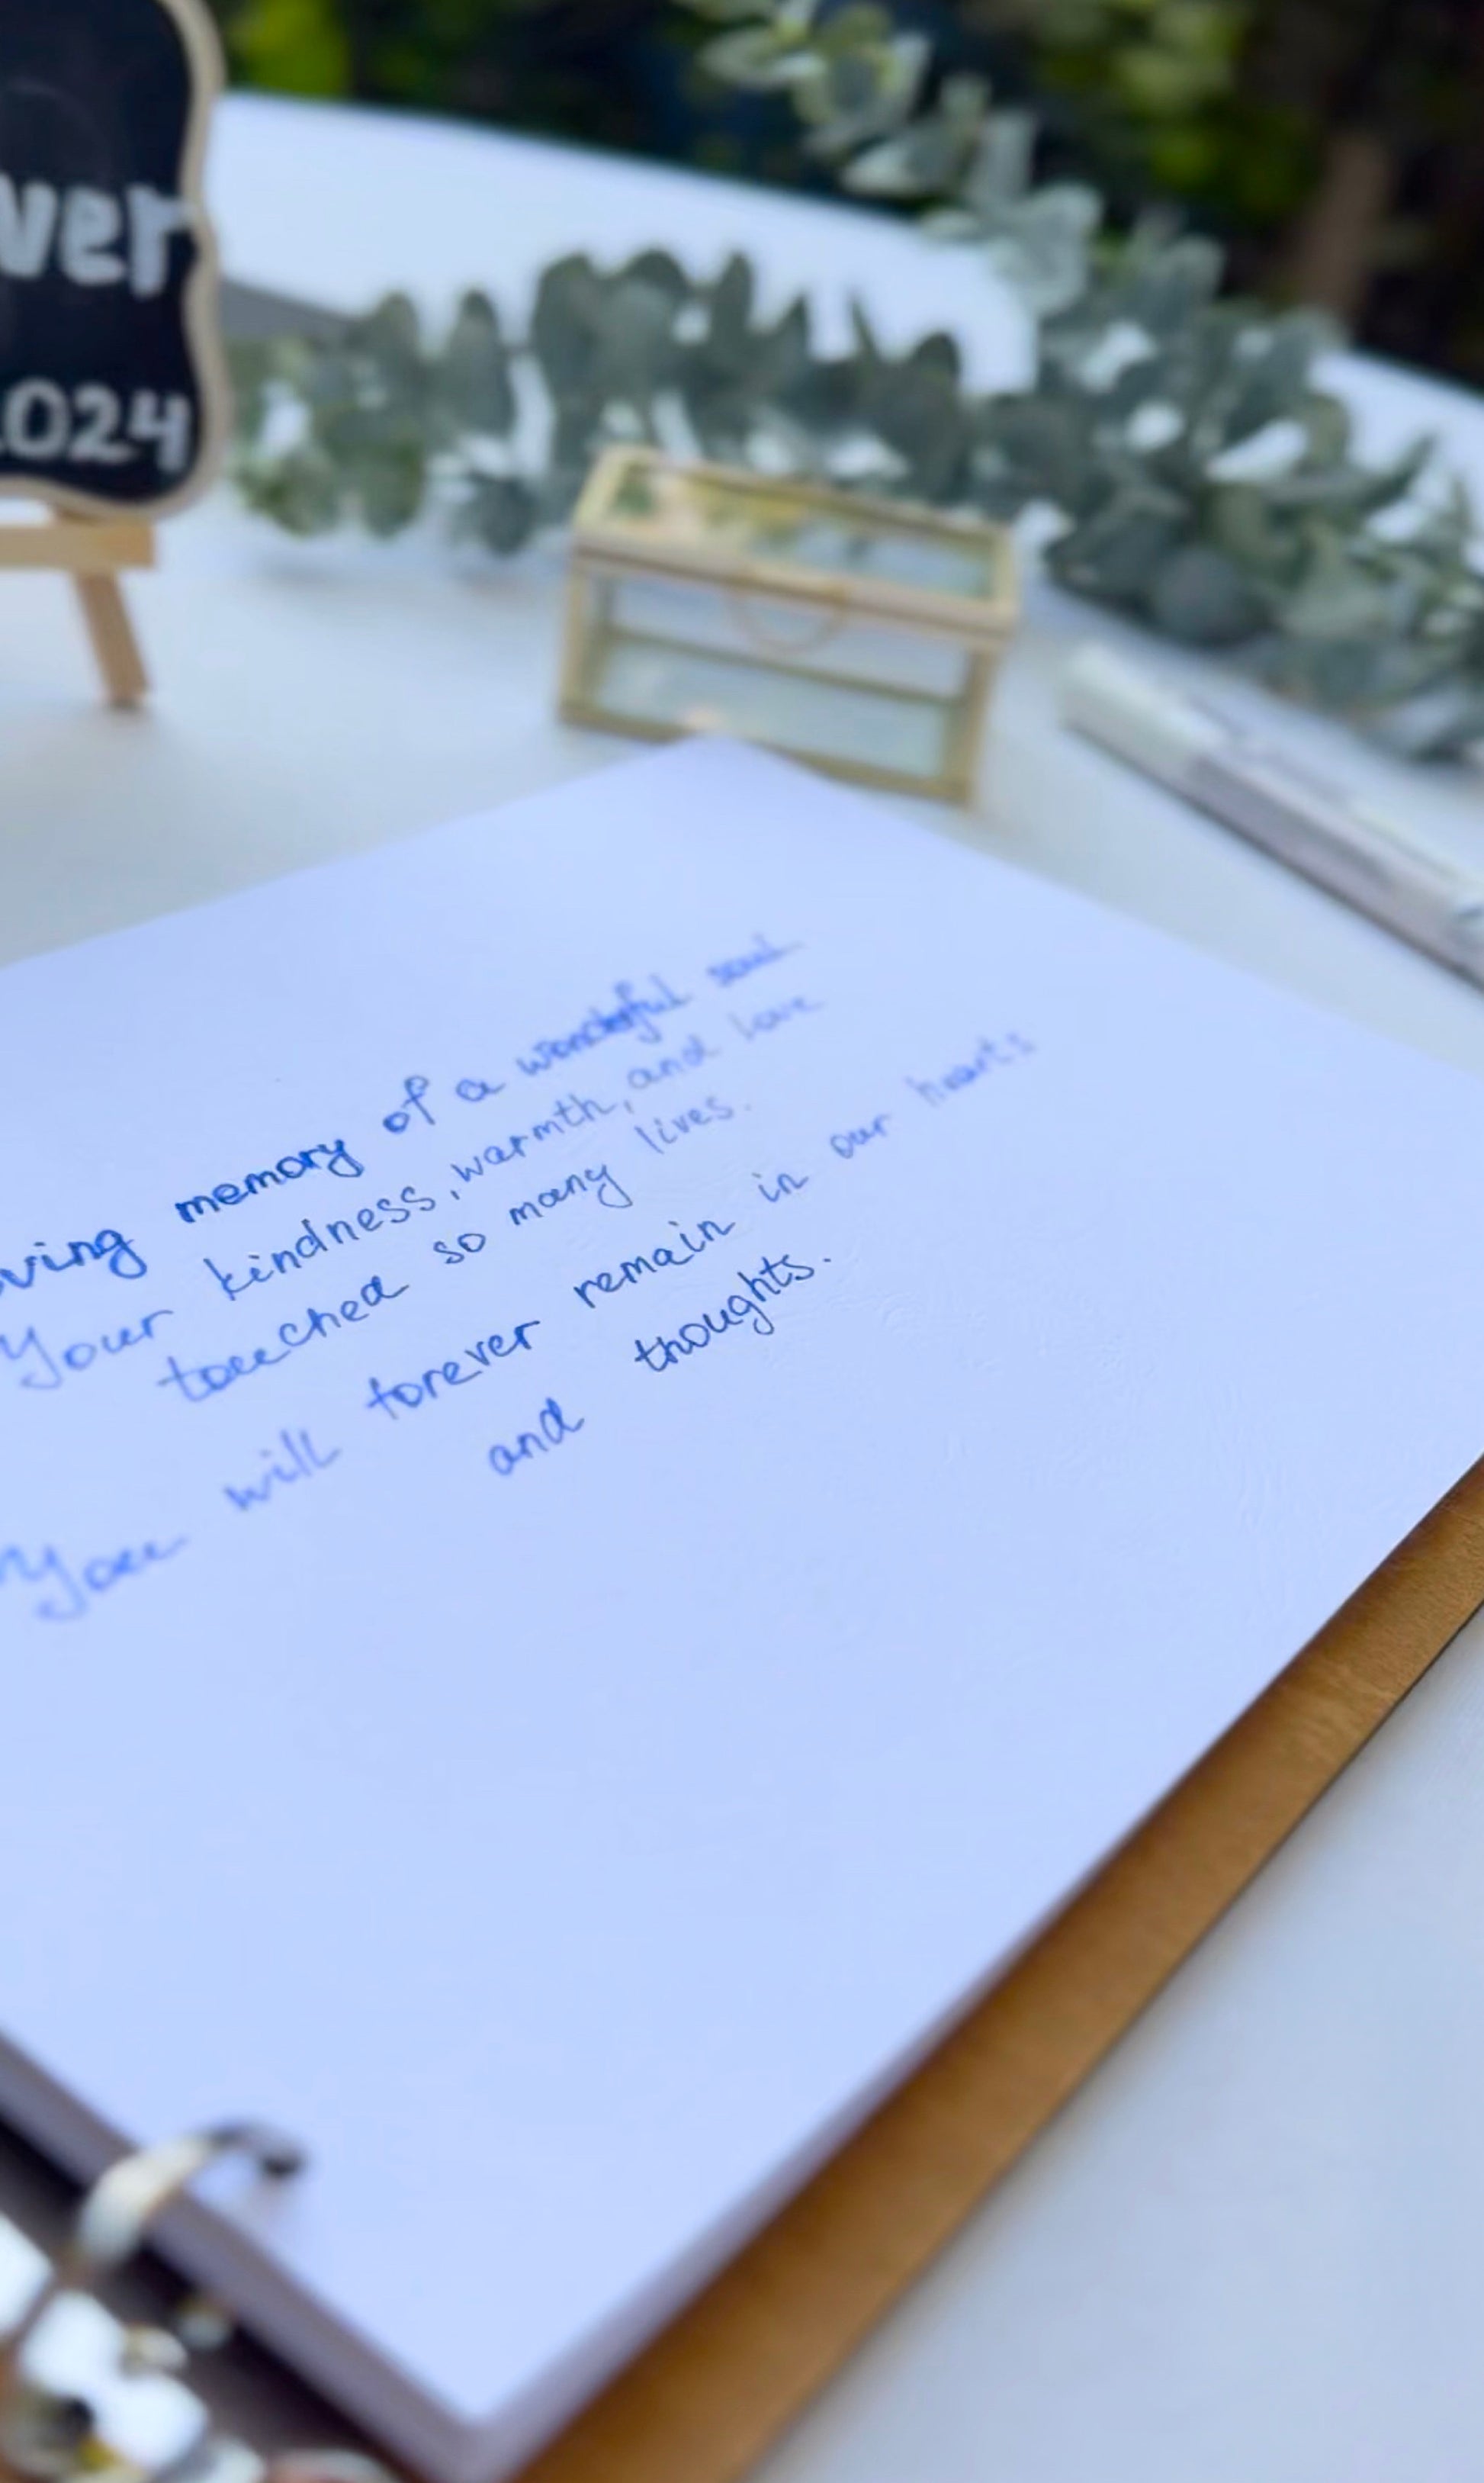 ver
2024
ving memory of a wonderful soul
Your kindness, warmth, and love
touched so many lives.
You will forever remain in our hearts
and thoughts.